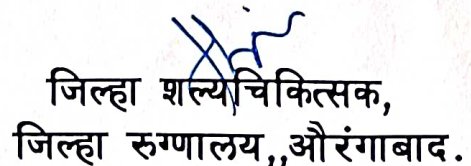 जिल्हा शल्यचिकित्सक,
जिल्हा रुग्णालय,,औरंगाबाद.